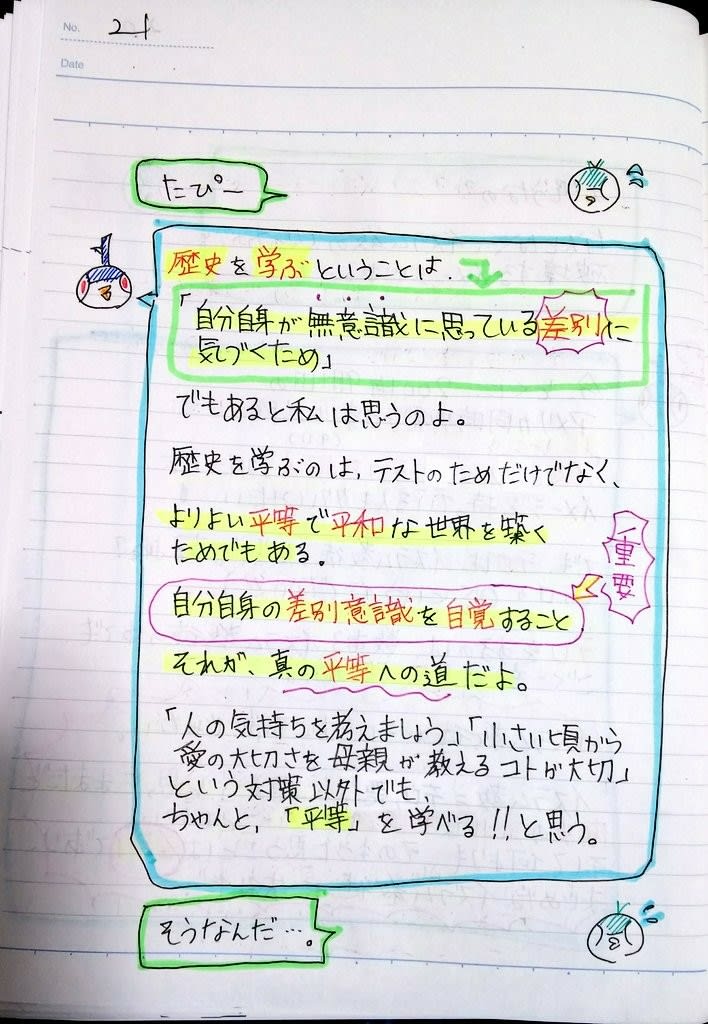 No. 21
Date
たぴー
歴史を学ぶということは、
「自分自身が無意識に思っている差別に
気づくため」
でもあると私は思うのよ。
歴史を学ぶのは、テストのためだけでなく、
よりよい平等で平和な世界を築く
ためでもある。
重要
自分自身の差別意識を自覚すること
それが、真の平等への道だよ。
「人の気持ちを考えましょう」「小さい頃から
愛の大切さを母親が教えるコトが大切」
という対策以外でも、
ちゃんと、「平等」を学べる!!と思う。
そうなんだ…。